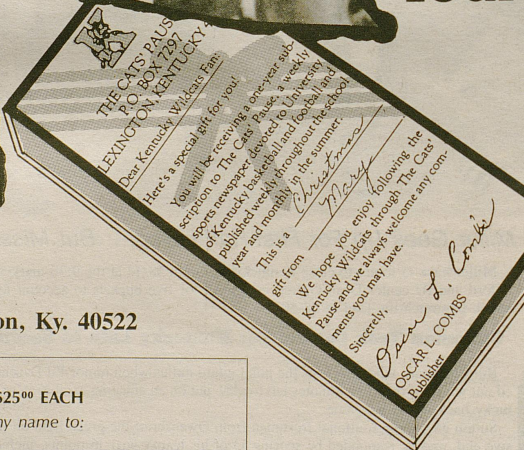 THE CATS' PAUSE
P.O. BOX 7297
LEXINGTON KENTUCKY 4
Dear Kentucky Wildcats Fan:
Here's a special gift for you!
You will be receiving a one-year sub-
scription to The Cats' Pause, a weekly
sports newspaper devoted to University
of Kentucky basketball and football and
published weekly throughout the school
year and monthly in the summer.
This is a Christmas
gift from Mary
We hope you enjoy following the
Kentucky Wildcats through The Cats'
Pause and we always welcome any com-
ments you may have.
Sincerely,
Oscar L. Combs
OSCAR L. COMBS
Publisher
on, Ky. 40522
$25⁰⁰ EACH
ny name to: